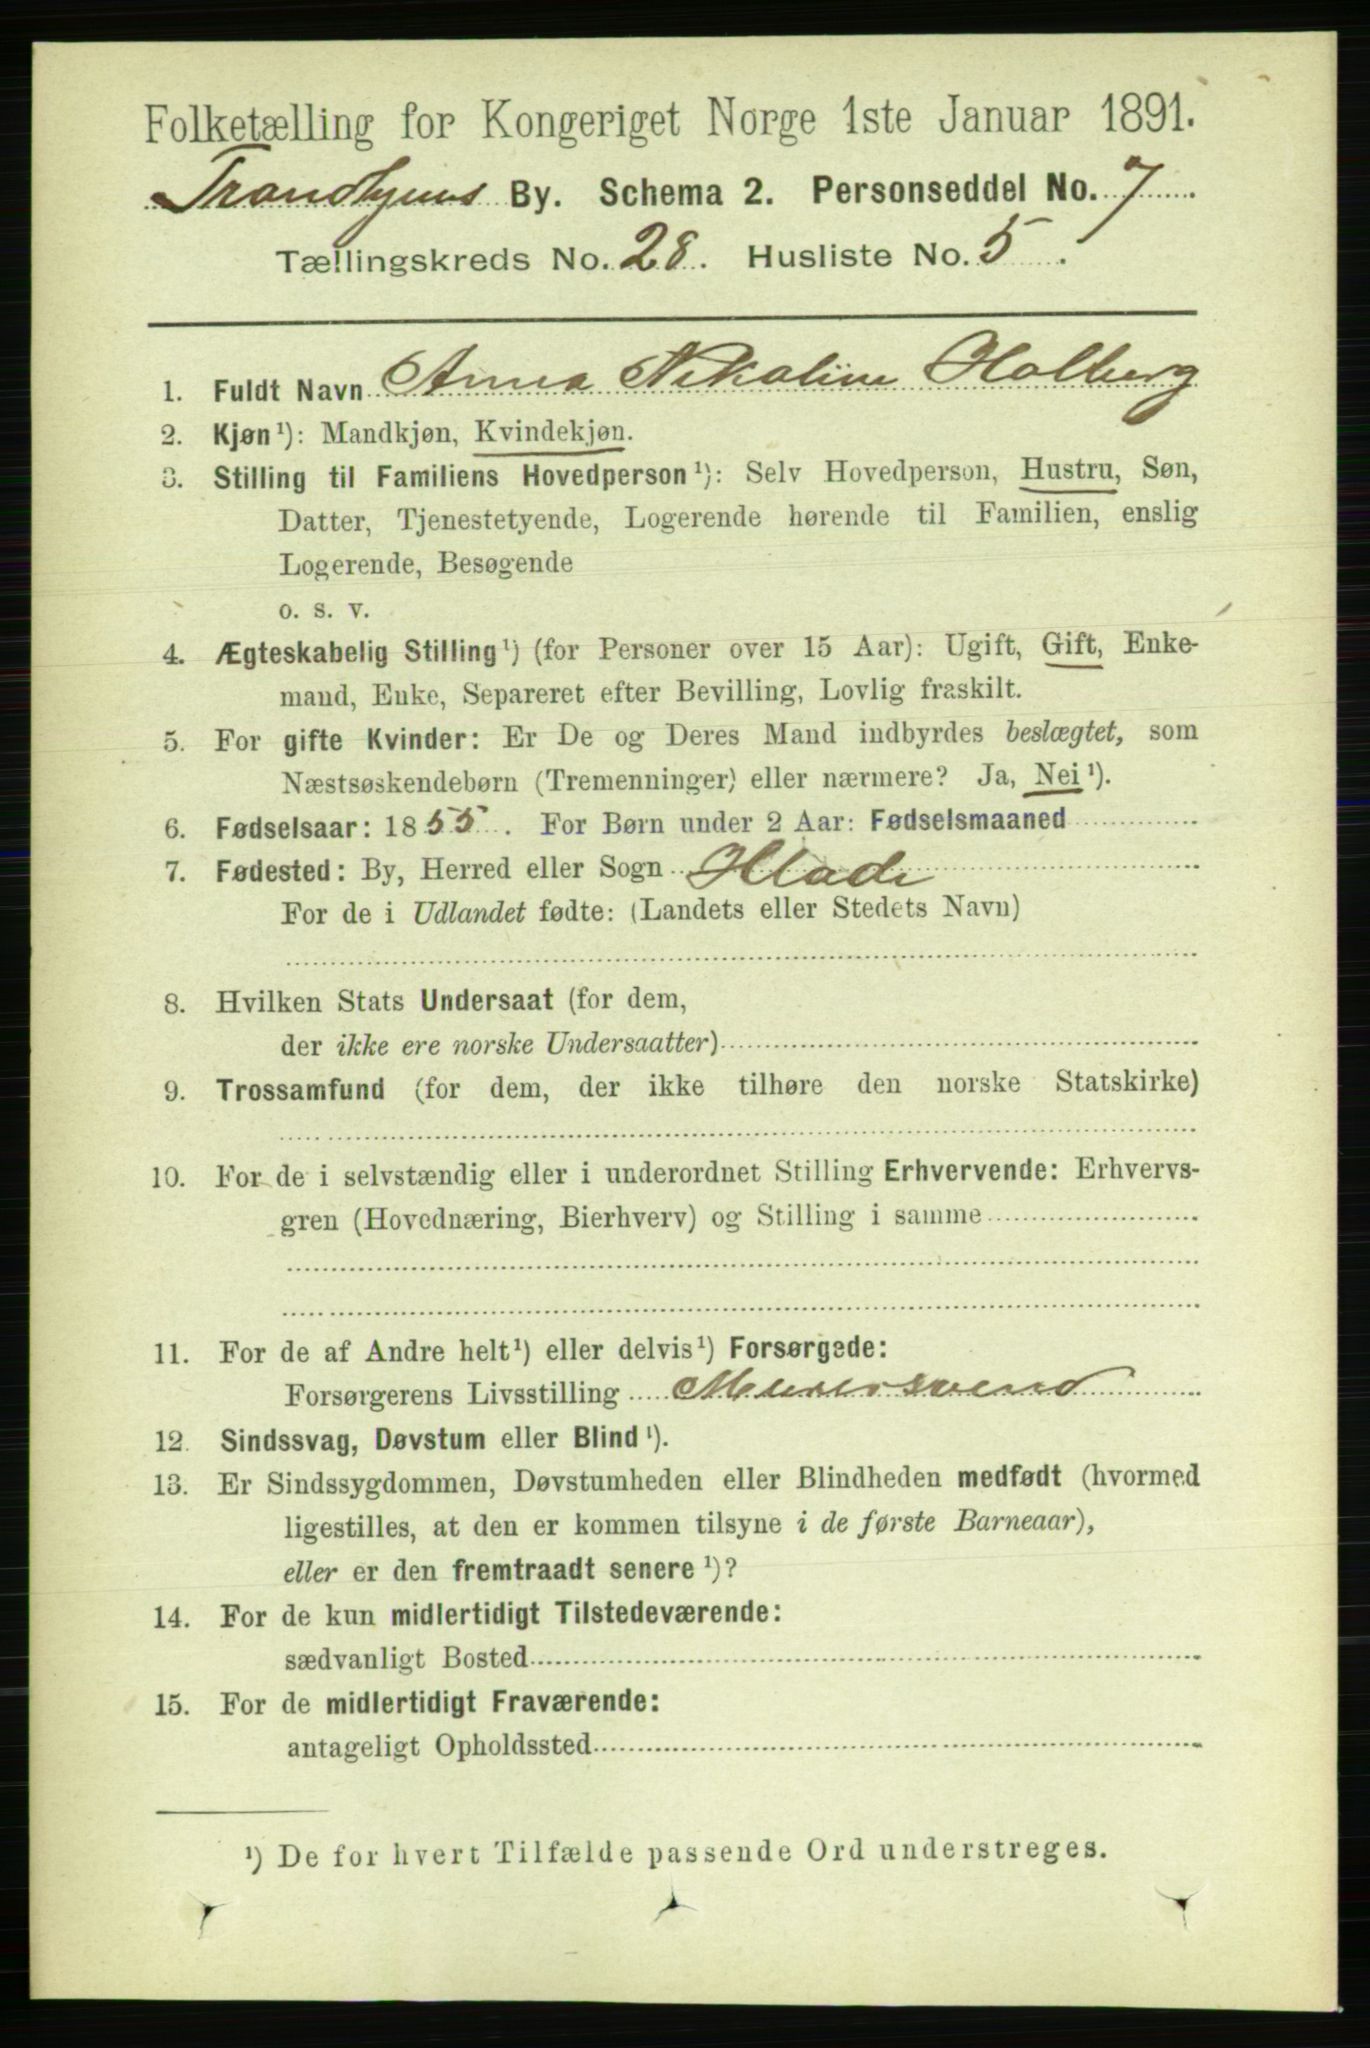 Folketælling for Kongeriget Norge 1ste Januar 1891.
Trondhjems By. Schema 2. Personseddel No. 7
Tællingskreds No. 28. Husliste No. 5.
1. Fuldt Navn Anna Nikoline Holberg
2. Kjøn¹): Mandkjøn, Kvindekjøn.
3. Stilling til Familiens Hovedperson¹): Selv Hovedperson, Hustru, Søn,
Datter, Tjenestetyende, Logerende hørende til Familien, enslig
Logerende, Besøgende
o. s. v.
4. Ægteskabelig Stilling¹) (for Personer over 15 Aar): Ugift, Gift, Enke-
mand, Enke, Separeret efter Bevilling, Lovlig fraskilt.
5. For gifte Kvinder: Er De og Deres Mand indbyrdes beslægtet, som
Næstsøskendebørn (Tremenninger) eller nærmere? Ja, Nei¹).
6. Fødselsaar: 1855. For Børn under 2 Aar: Fødselsmaaned
7. Fødested: By, Herred eller Sogn Hlade
For de i Udlandet fødte: (Landets eller Stedets Navn)
8. Hvilken Stats Undersaat (for dem,
der ikke ere norske Undersaatter)
9. Trossamfund (for dem, der ikke tilhøre den norske Statskirke)
10. For de i selvstændig eller i underordnet Stilling Erhvervende: Erhvervs-
gren (Hovednæring, Bierhverv) og Stilling i samme
11. For de af Andre helt¹) eller delvis¹) Forsørgede:
Forsørgerens Livsstilling Murersvend
12. Sindssvag, Døvstum eller Blind¹).
13. Er Sindssygdommen, Døvstumheden eller Blindheden medfødt (hvormed
ligestilles, at den er kommen tilsyne i de første Barneaar),
eller er den fremtraadt senere¹)?
14. For de kun midlertidigt Tilstedeværende:
sædvanligt Bosted
15. For de midlertidigt Fraværende:
antageligt Opholdssted
¹) De for hvert Tilfælde passende Ord understreges.